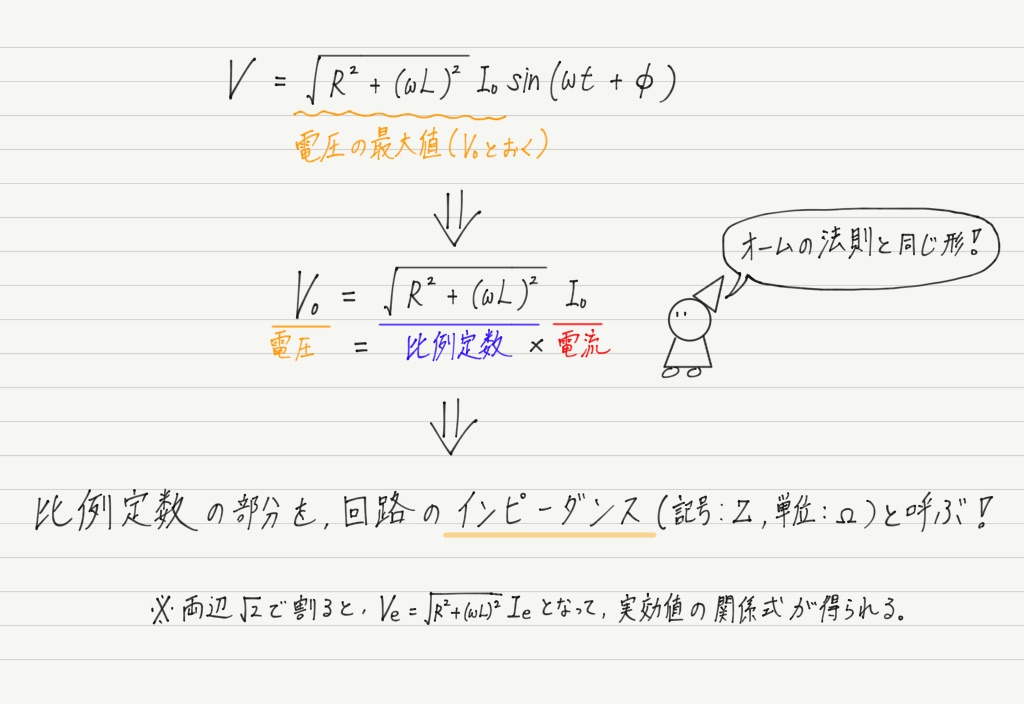 V = √(R² + (ωL)²) I₀ sin(ωt + φ)
電圧の最大値(V₀とおく)
オームの法則と同じ形!
V₀ = √(R² + (ωL)²) I₀
電圧 = 比例定数 × 電流
比例定数の部分を,回路のインピーダンス(記号:Z,単位:Ω)と呼ぶ!
※両辺√2で割ると,Ve=√(R²+(ωL)²) Ieとなって,実効値の関係式が得られる。